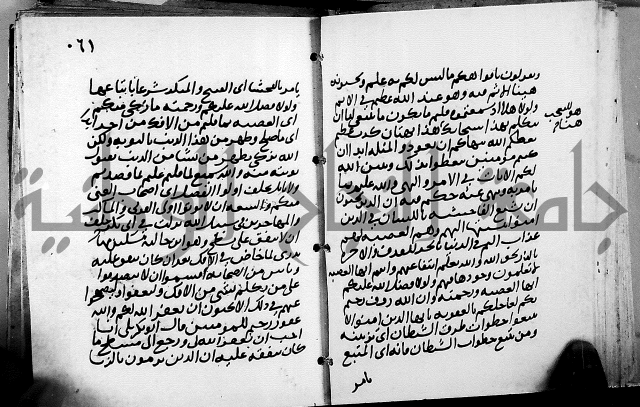 وتقولون بافواهكم ما ليس لكم به علم وتحسبونه
هينا لا اثم فيه وهو عند الله عظيم في الاثم
ولولا هلا اذ سمعتموه قلتم ما يكون ما ينبغي لنا ان
نتكلم بهذا سبحانك هذا بهتان كذب عظيم
هو للتعجب
هنا
يعظكم الله ينهاكم ان تعودوا لمثله ابدا ان
كنتم مؤمنين تتعظوا بذلك ويبين الله
لكم الايات في الامر والنهي والله عليم بما
يامر به وينهى عنه حكيم فيه ان الذين يحبون
ان تشيع الفاحشة باللسان في الذين
امنوا بنسبتها اليهم وهم العصبة لهم
عذاب اليم في الدنيا بحد القذف والاخرة
بالنار لحق الله والله يعلم انتفاءها عنهم وانتم ايها العصبة
لا تعلمون وجودها فيهم ولولا فضل الله عليكم
ايها العصبة ورحمته وان الله رؤف رحيم
بكم لعاجلكم بالعقوبة يا ايها الذين امنوا لا
تتبعوا خطوات طرق الشيطان اي تزيينه
ومن يتبع خطوات الشيطان فانه اي المتبع
يامر
٠٦١
يامر بالفحشاء اي القبيح والمنكر شرعا باتباعها
ولولا فضل الله عليكم ورحمته ما زكى منكم
اي العصبة ما قلتم من الافك من احد ابدا
اي ما صلح وطهر من هذا الذنب بالتوبة ولكن
الله يزكي يطهر من يشاء من الذنب بقبول
توبته منه والله سميع لما قلتم عليم بما قصدتم
ولا ياتل يحلف اولوا الفضل اي اصحاب الغنى
منكم والسعة ان لا يؤتوا اولي القربى والمساكين
والمهاجرين في سبيل الله نزلت في ابي بكر حلف
ان لا ينفق على مسطح وهو ابن خالته مسكين مهاجر
بدري لما خاض في الافك بعد ان كان ينفق عليه
وناس من الصحابة اقسموا ان لا يتصدقوا
على من تكلم بشي من الافك وليعفوا وليصفحوا
عنهم في ذلك الا تحبون ان يغفر الله لكم والله
غفور رحيم للمومنين قال ابو بكر بلى انا
احب ان يغفر الله لي ورجع الى مسطح ما
كان ينفقه عليه ان الذين يرمون بالزنا
جامعة النجاح الوطنية